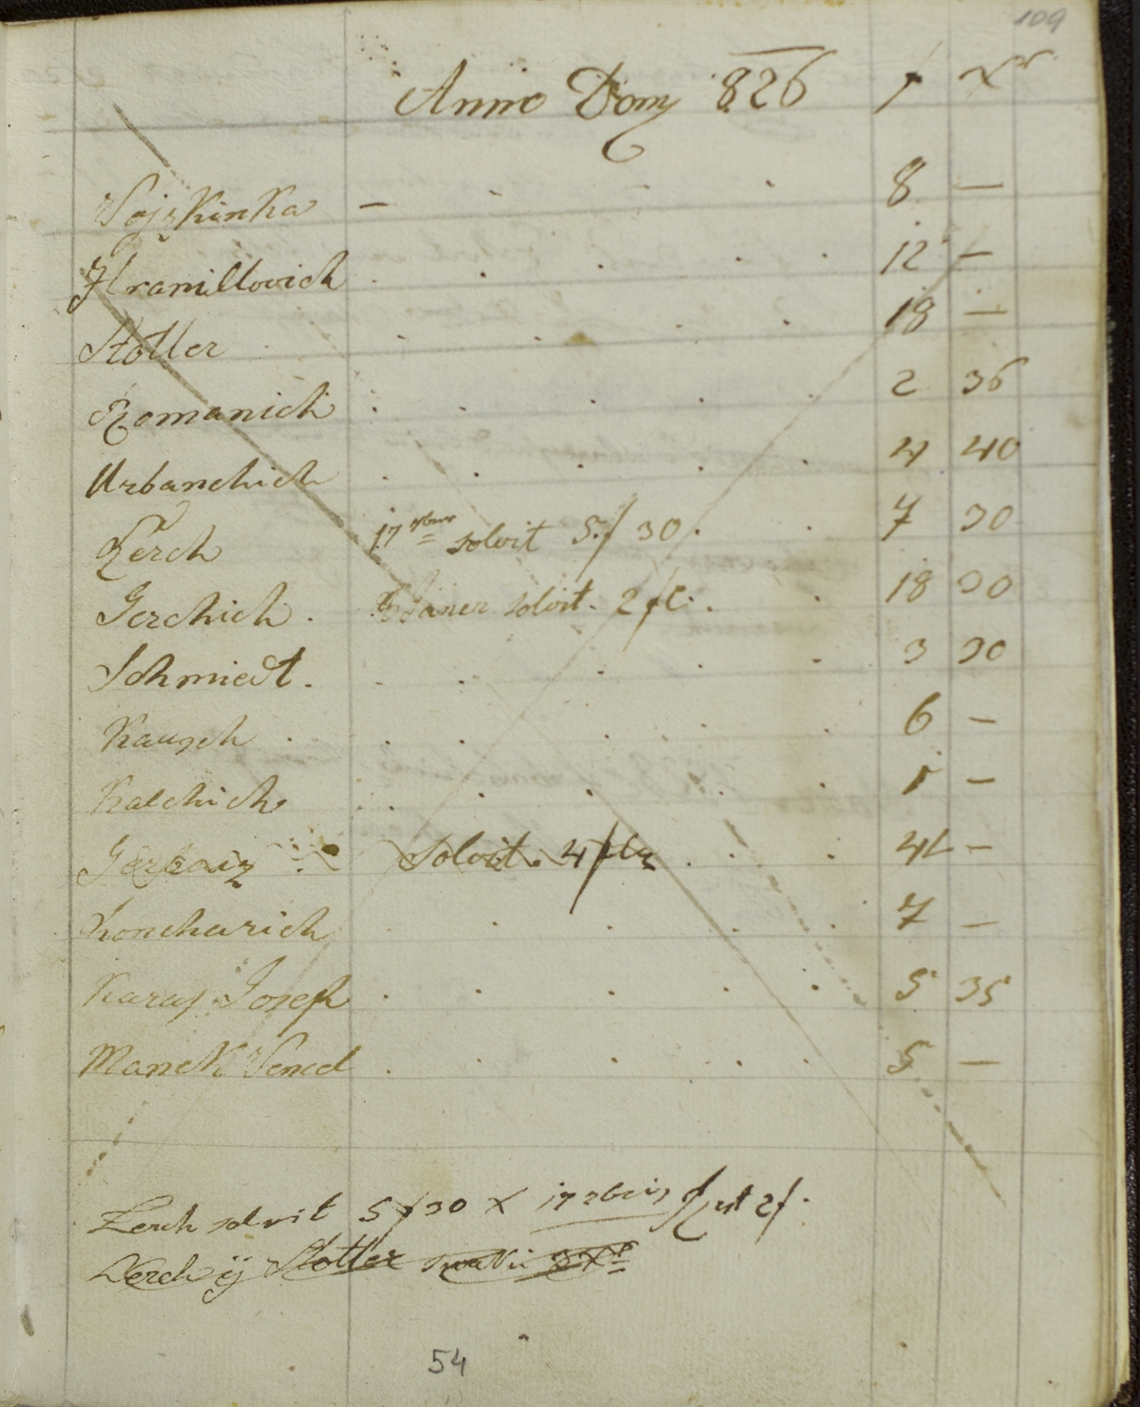 109
Anno Domj 826 f xr
Vojzkinka — 8 —
Hramillovich 12 —
Stotler 18 —
Romanich 2 36
Urbanchich 4 40
Lerch 17 solvit 5 f 30. 7 30
Gerchich. solvit. 2 f 18 30
Schmiedt. 3 30
Kausch 6 —
Kalchich 1 —
solvit. 4 f 4 —
Koncharich 7 —
Karaj Josef 5 35
Manck Vencl 5 —
Lerch solvit 5 f 30 x 17 2 f.
Lerch ij Stotler
54